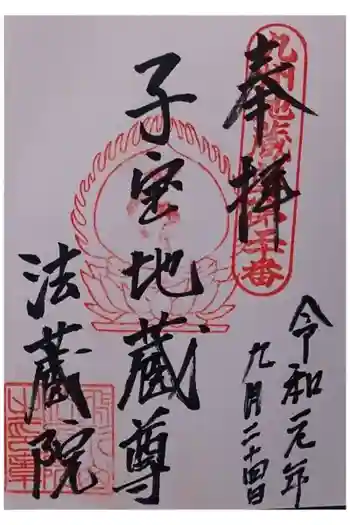 奉拝
子宝地蔵尊
法蔵院
令和元年
九月二十四日